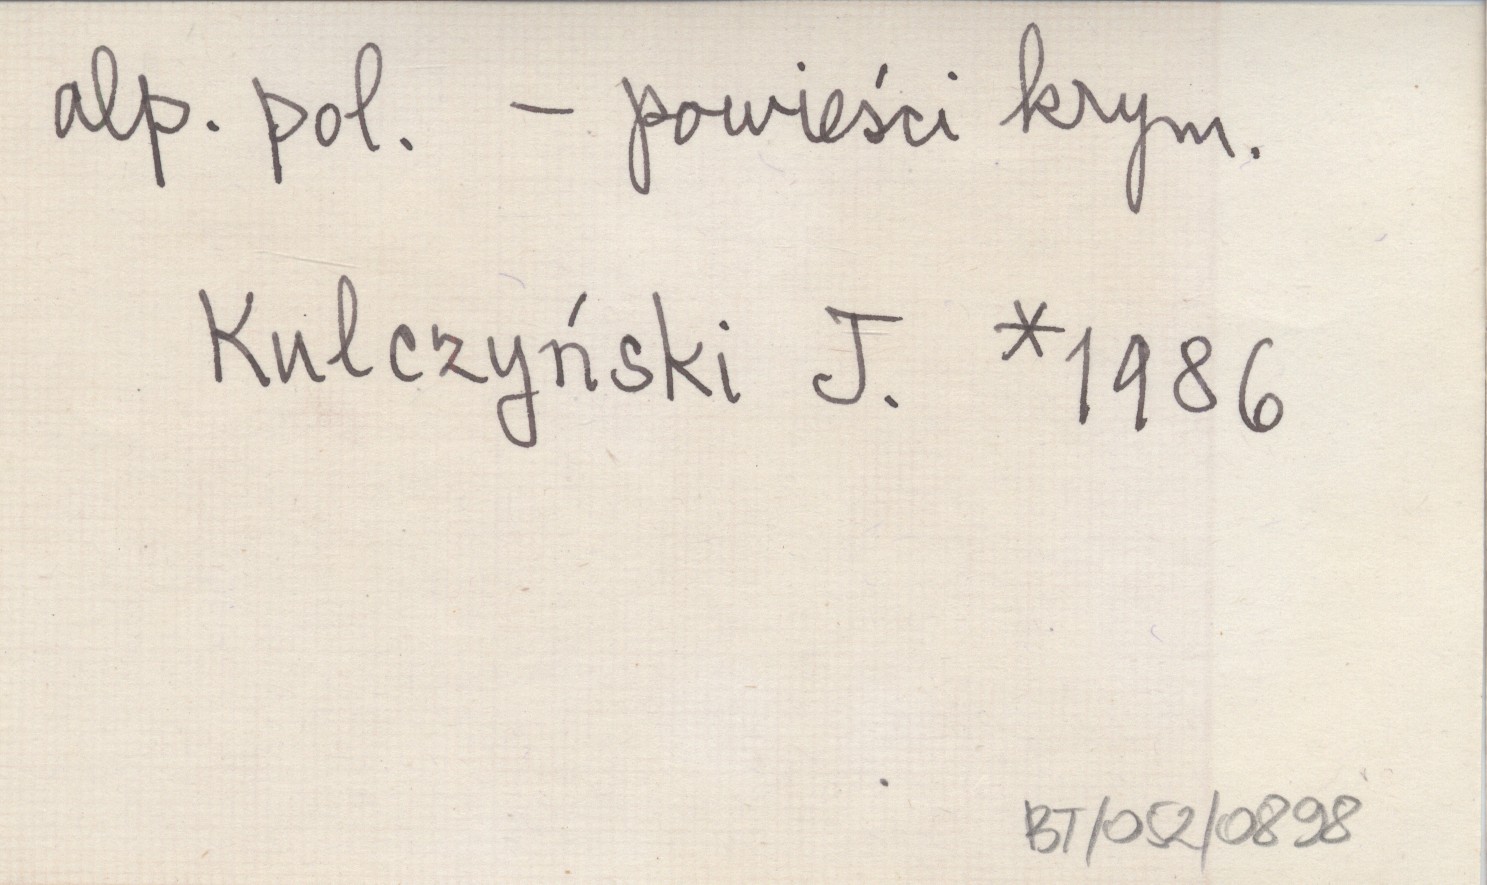 alp. pol. – powieści krym.
Kulczyński J. *1986
BT/052/0898